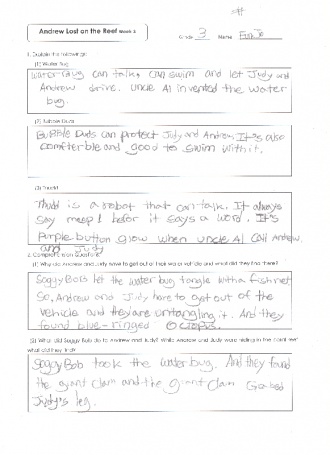 Andrew Lost on the Reef Week 3
Grade 3 Name
1. Explain the followings:
(1) Water Bug
Water Bug can talk, can swim and let Judy and
Andrew drive. Uncle Al invented the water
bug.
(2) Bubble Duds
Bubble Duds can protect Judy and Andrew. It's also
comfterble and good to swim with it.
(3) Thudd
Thudd is a robot that can talk. It always
say meep! befor it says a word. It's
Purple button glow when uncle Al call Andrew
and Judy
2. Comprehension Questions:
(1) Why did Andrew and Judy have to get out of their water vehicle and what did they find there?
Soggy Bob let the water bug tangle with a fishnet
So, Andrew and Judy have to get out of the
vehicle and they are untangling it. And they
found blue-ringed Octopus.
(2) What did Soggy Bob do to Andrew and Judy? While Andrew and Judy were hiding in the coral reef
what did they find?
Soggy Bob took the water bug. And they found
the giant clam and the giant clam Grabed
Judy's leg.